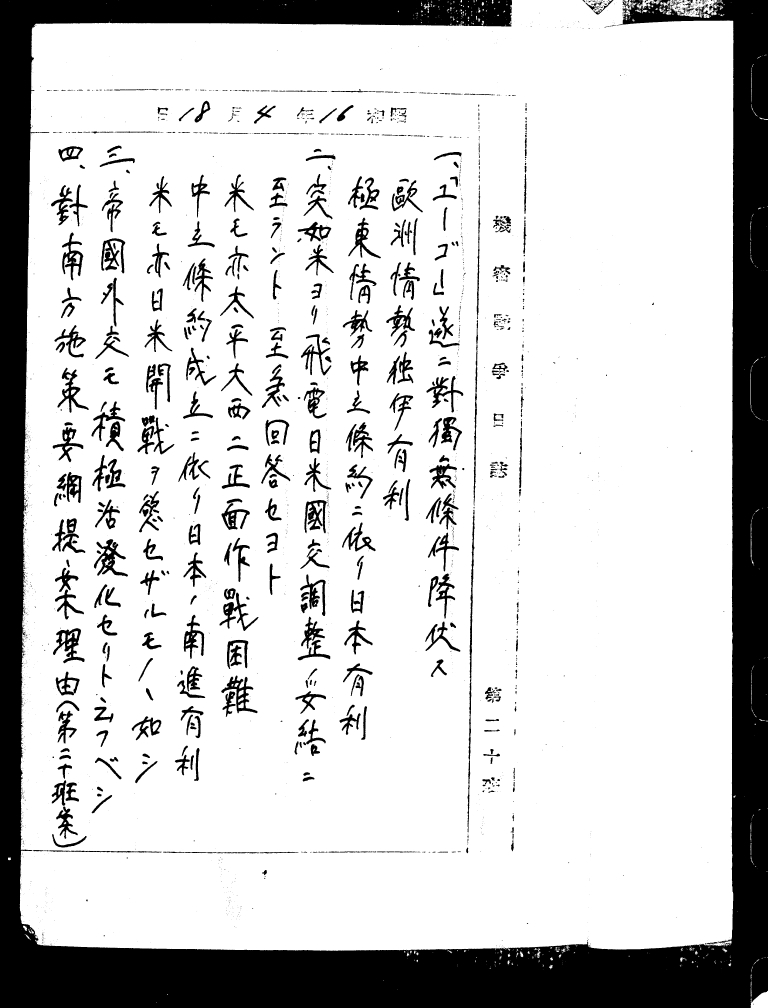 機密戰爭日誌
第二十班
昭和16年4月18日
一、「ユーゴ」遂ニ對獨無條件降伏ス
歐洲情勢独伊有利
極東情勢中立條約ニ依リ日本有利
二、突如米ヨリ飛電日米國交調整妥結ニ
至ラント 至急回答セヨト
米モ亦太平大西二正面作戰困難
中立條約成立ニ依リ日本ノ南進有利
米モ亦日米開戰ヲ慾セザルモノヽ如シ
三、帝國外交モ積極活潑化セリト云フベシ
四、對南方施策要綱提案理由(第二十班案)